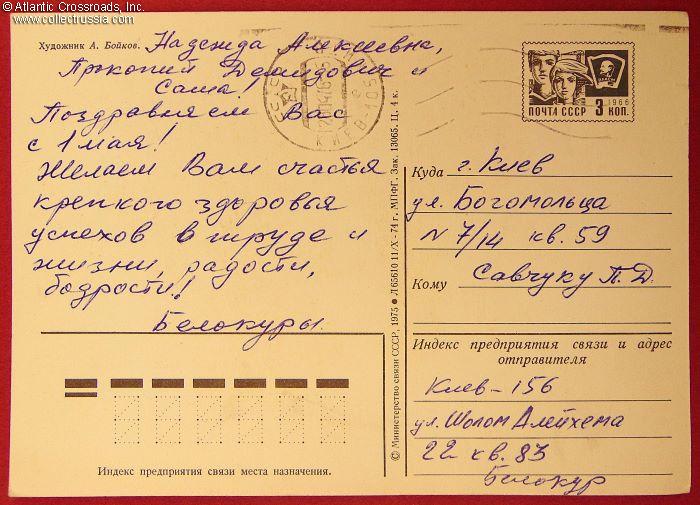 © Atlantic Crossroads, Inc.
www.collectrussia.com
Художник А. Бойков.
Надежда Алексеевна,
Прокопий Демидович и
Саша!
Поздравляем Вас
с 1 мая!
Желаем Вам счастья
крепкого здоровья
успехов в труде и
жизни, радости,
бодрости!
Белокуры.
Индекс предприятия связи места назначения.
© Министерство связи СССР, 1975 ● Л 65610 11/X - 74 г. МПФГ. Зак. 13065. Ц. 4 к.
КИЕВ-105
1966
ПОЧТА СССР 3 КОП.
Куда г. Киев
ул. Богомольца
N 7/14 кв. 59
Кому Савчуку П. Д.
Индекс предприятия связи и адрес
отправителя
Киев-156
ул. Шолом Алейхема
22 кв. 83
Белокур